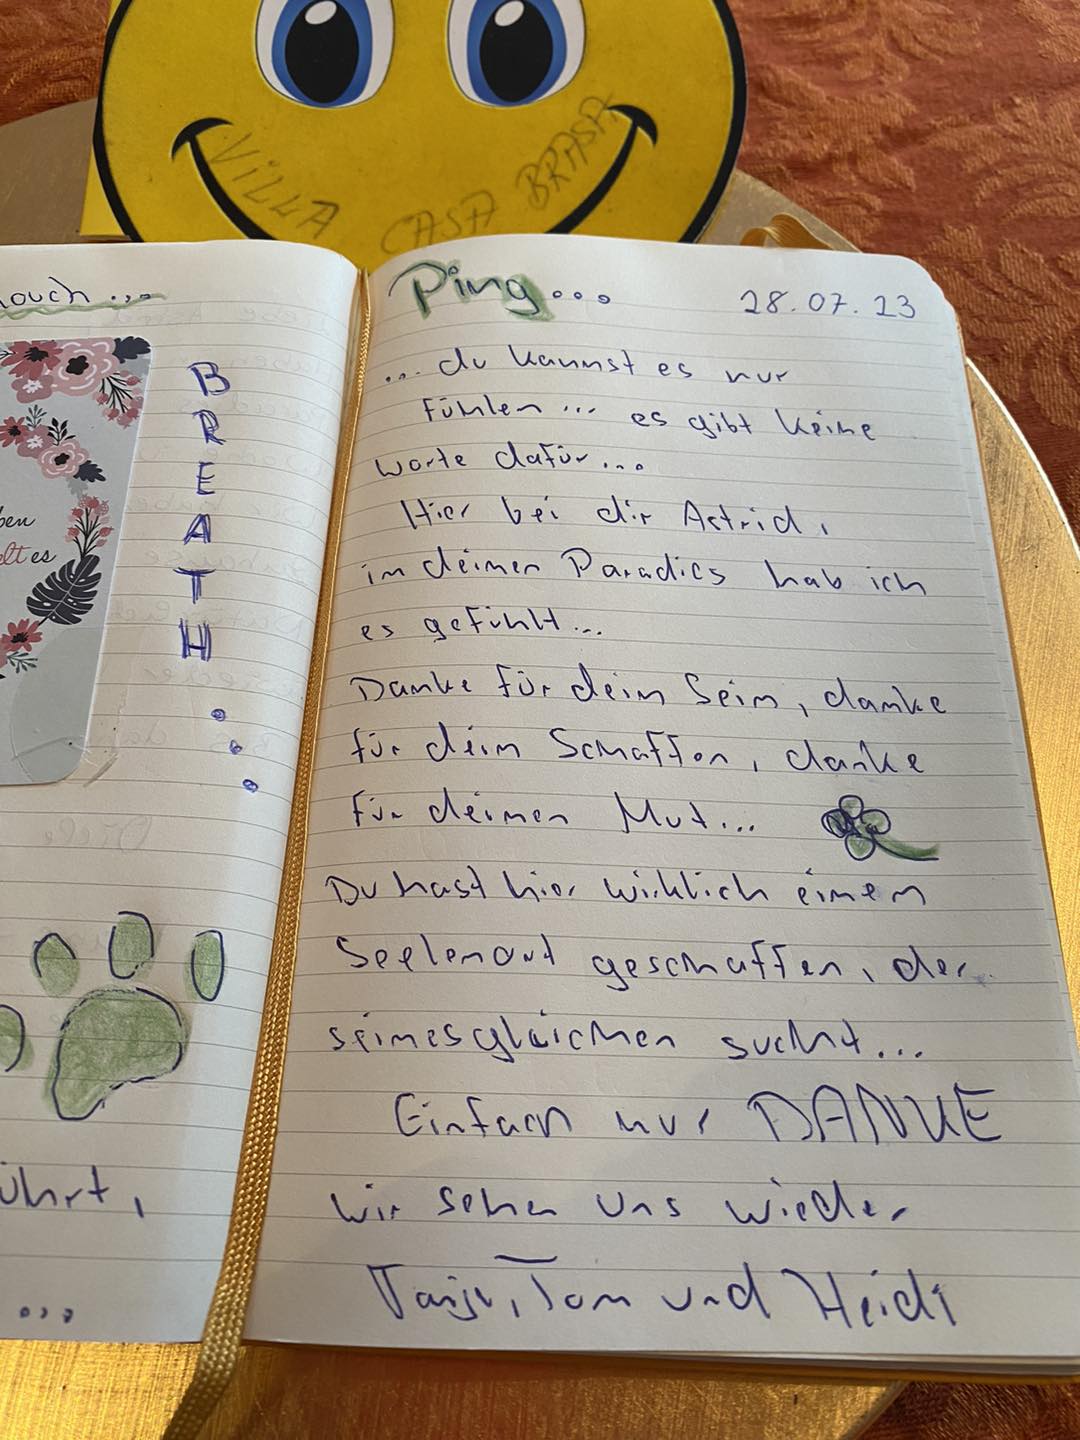 VILLA CASA BRASA
ouch...
ben
elt es
BREATH...
ührt,
...
Ping... 28.07.23
... du kannst es nur
fühlen... es gibt keine
worte dafür...
Hier bei dir Astrid,
in deinen Paradies hab ich
es gefühlt...
Danke für dein Sein, danke
für dein Schaffen, danke
für deinen Mut...
Du hast hier wirklich einen
Seelenort geschaffen, der
seinesgleichen sucht...
Einfach nur DANKE
wir sehen uns wieder
Tanja, Tom und Heidi